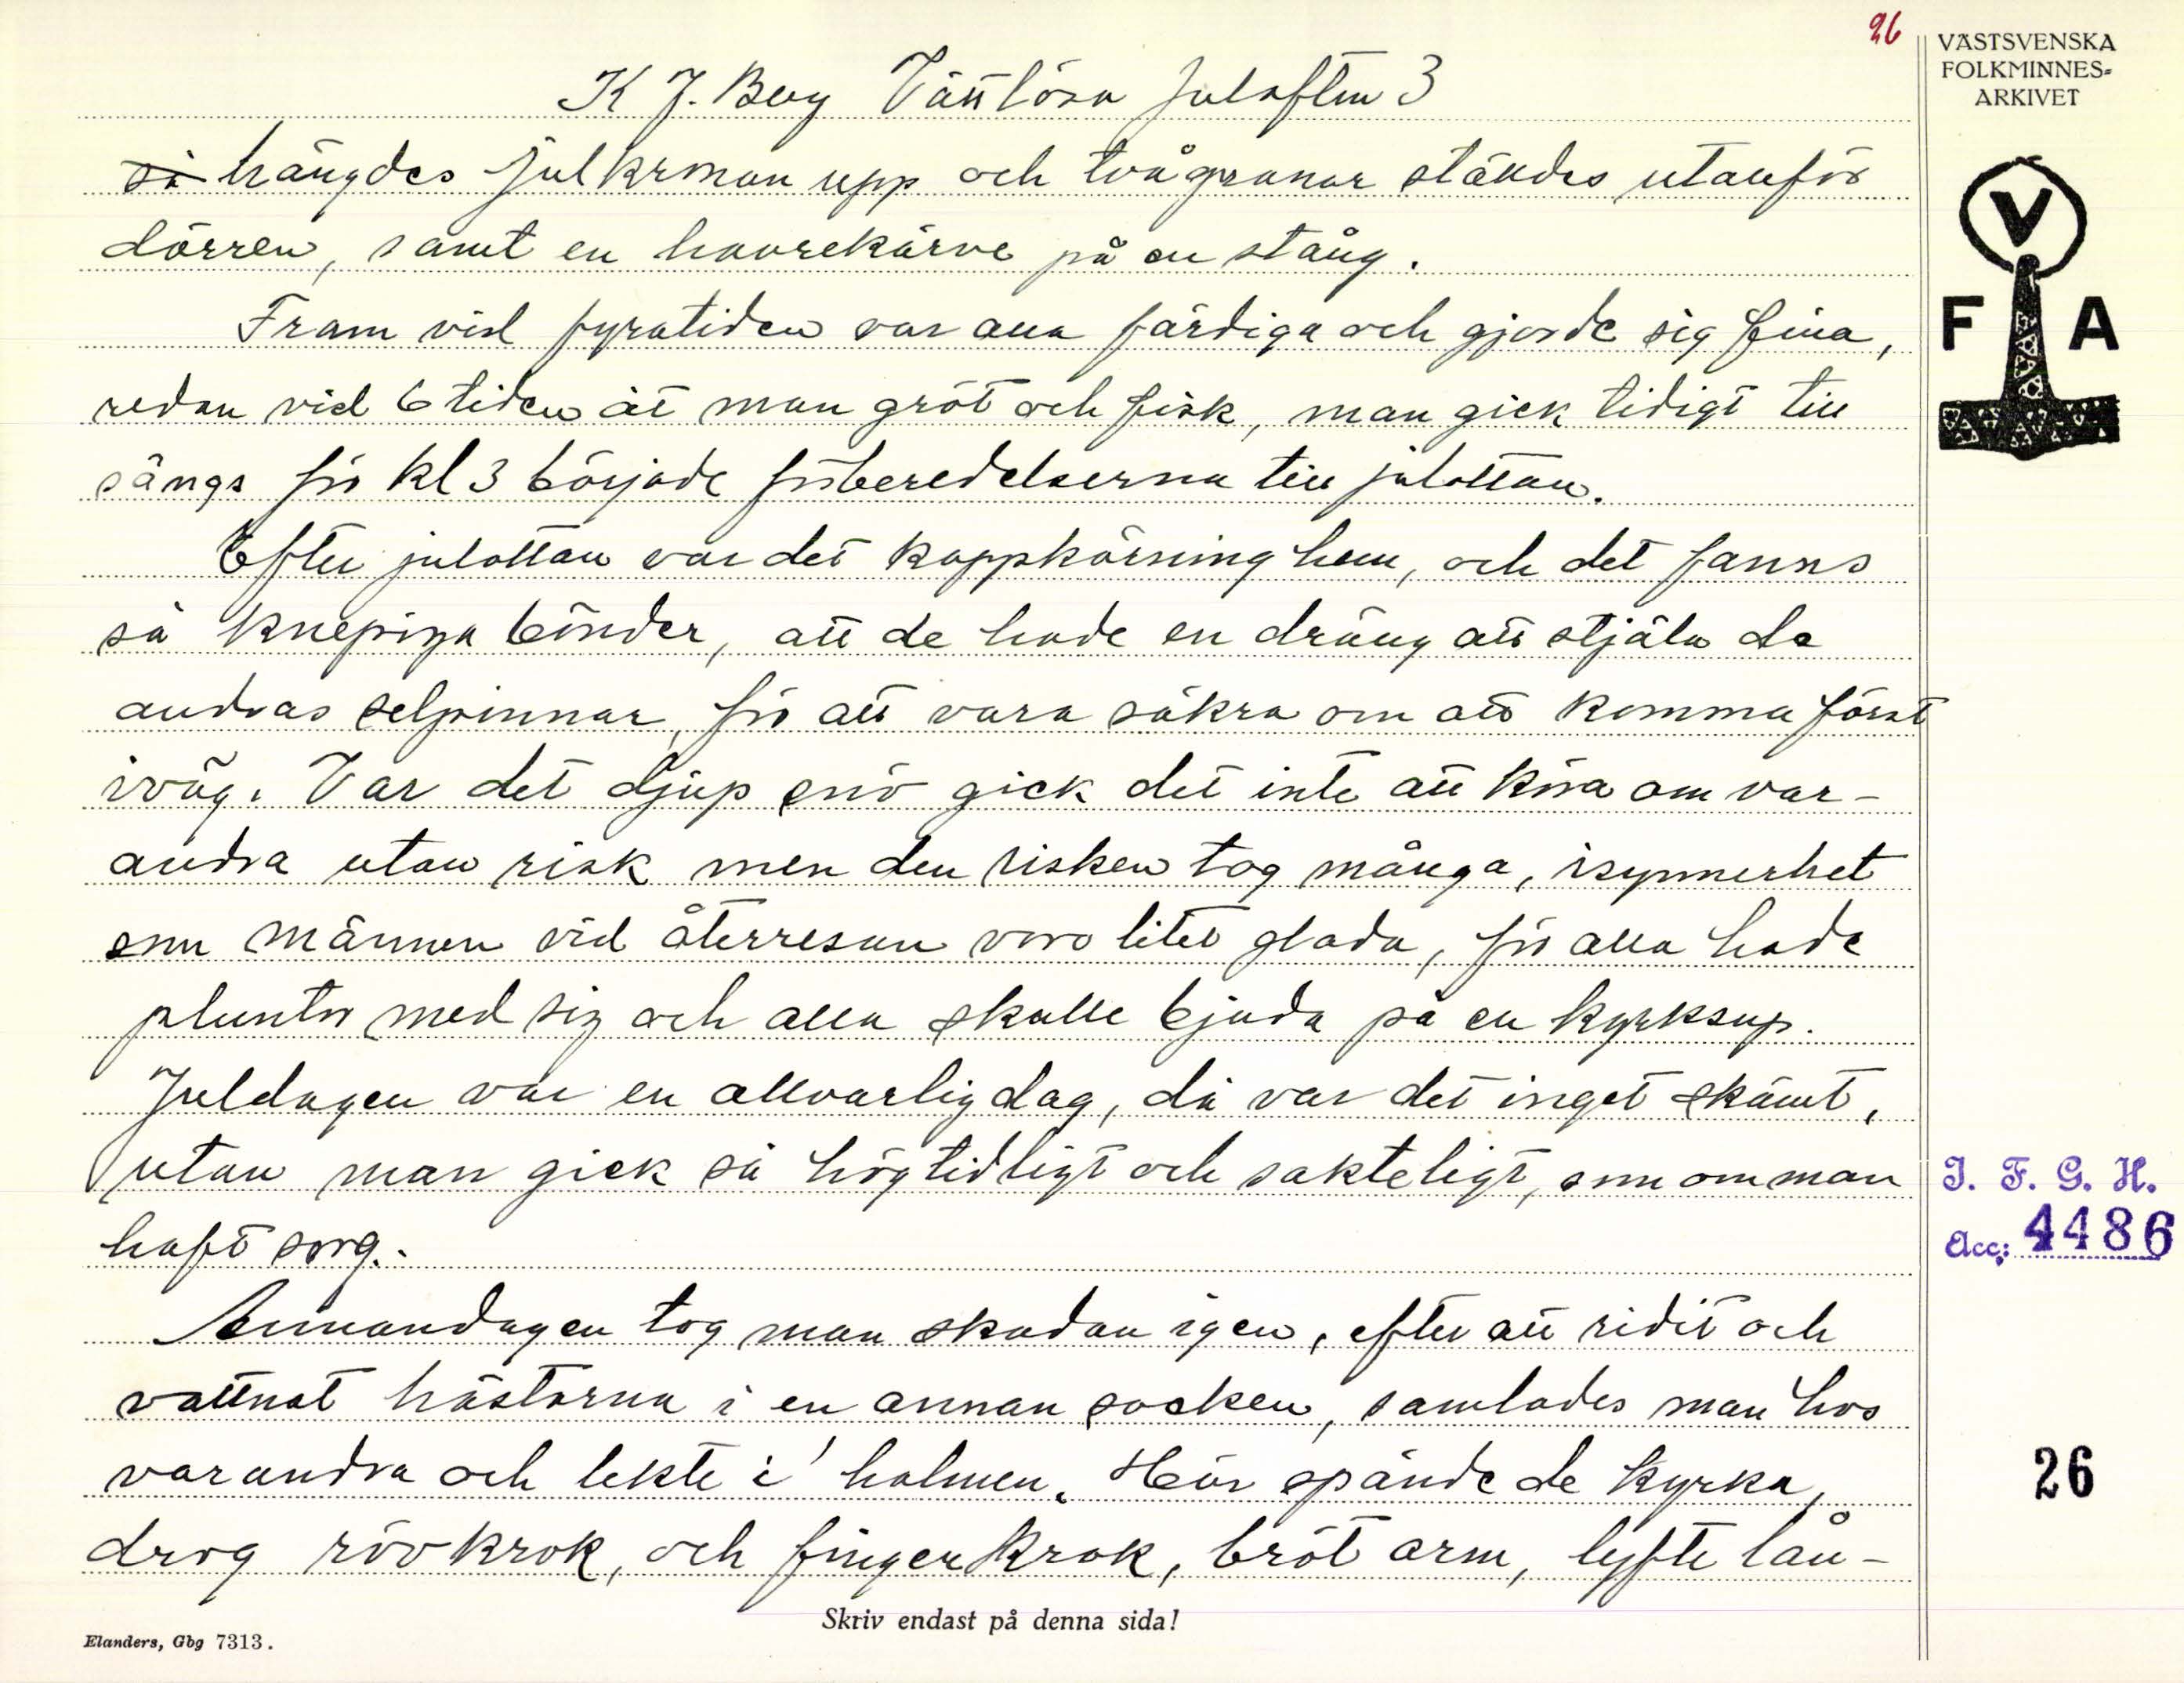 26
VÄSTSVENSKA
FOLKMINNES-
ARKIVET
V
F A
K J. Berg Vättlösa Julafton 3
så hängdes julkronan upp och två granar ständes utanför
dörren, samt en havrekärve på en stång.
Fram vid fyratiden var alla färdiga och gjorde sig fina,
redan vid 6 tiden åt man gröt och fisk, man gick tidigt till
sängs för kl 3 började förberedelserna till julottan.
Efter julottan var det kappkörning hem, och det fanns
så knepiga bönder, att de hade en dräng att stjäla de
andras selpinnar, för att vara säkra om att komma först
iväg. Var det djup snö gick det inte att köra om var-
andra utan risk men den risken tog många, isynnerhet
som männen vid återresan voro litet glada, för alla hade
pluntor med sig och alla skulle bjuda på en kyrksup.
Juldagen var en allvarlig dag, då var det inget skämt,
utan man gick så högtidligt och sakteligt, som om man
haft sorg.
Annandagen tog man skadan igen, efter att ridit och
vattnat hästarna i en annan socken, samlades man hos
varandra och lekte i halmen. Här spände de kyrka,
drog rövkrok, och fingerkrok, bröt arm, lyfte lån-
J. F. G. H.
Acc: 4486
26
Skriv endast på denna sida!
Elanders, Gbg 7313.